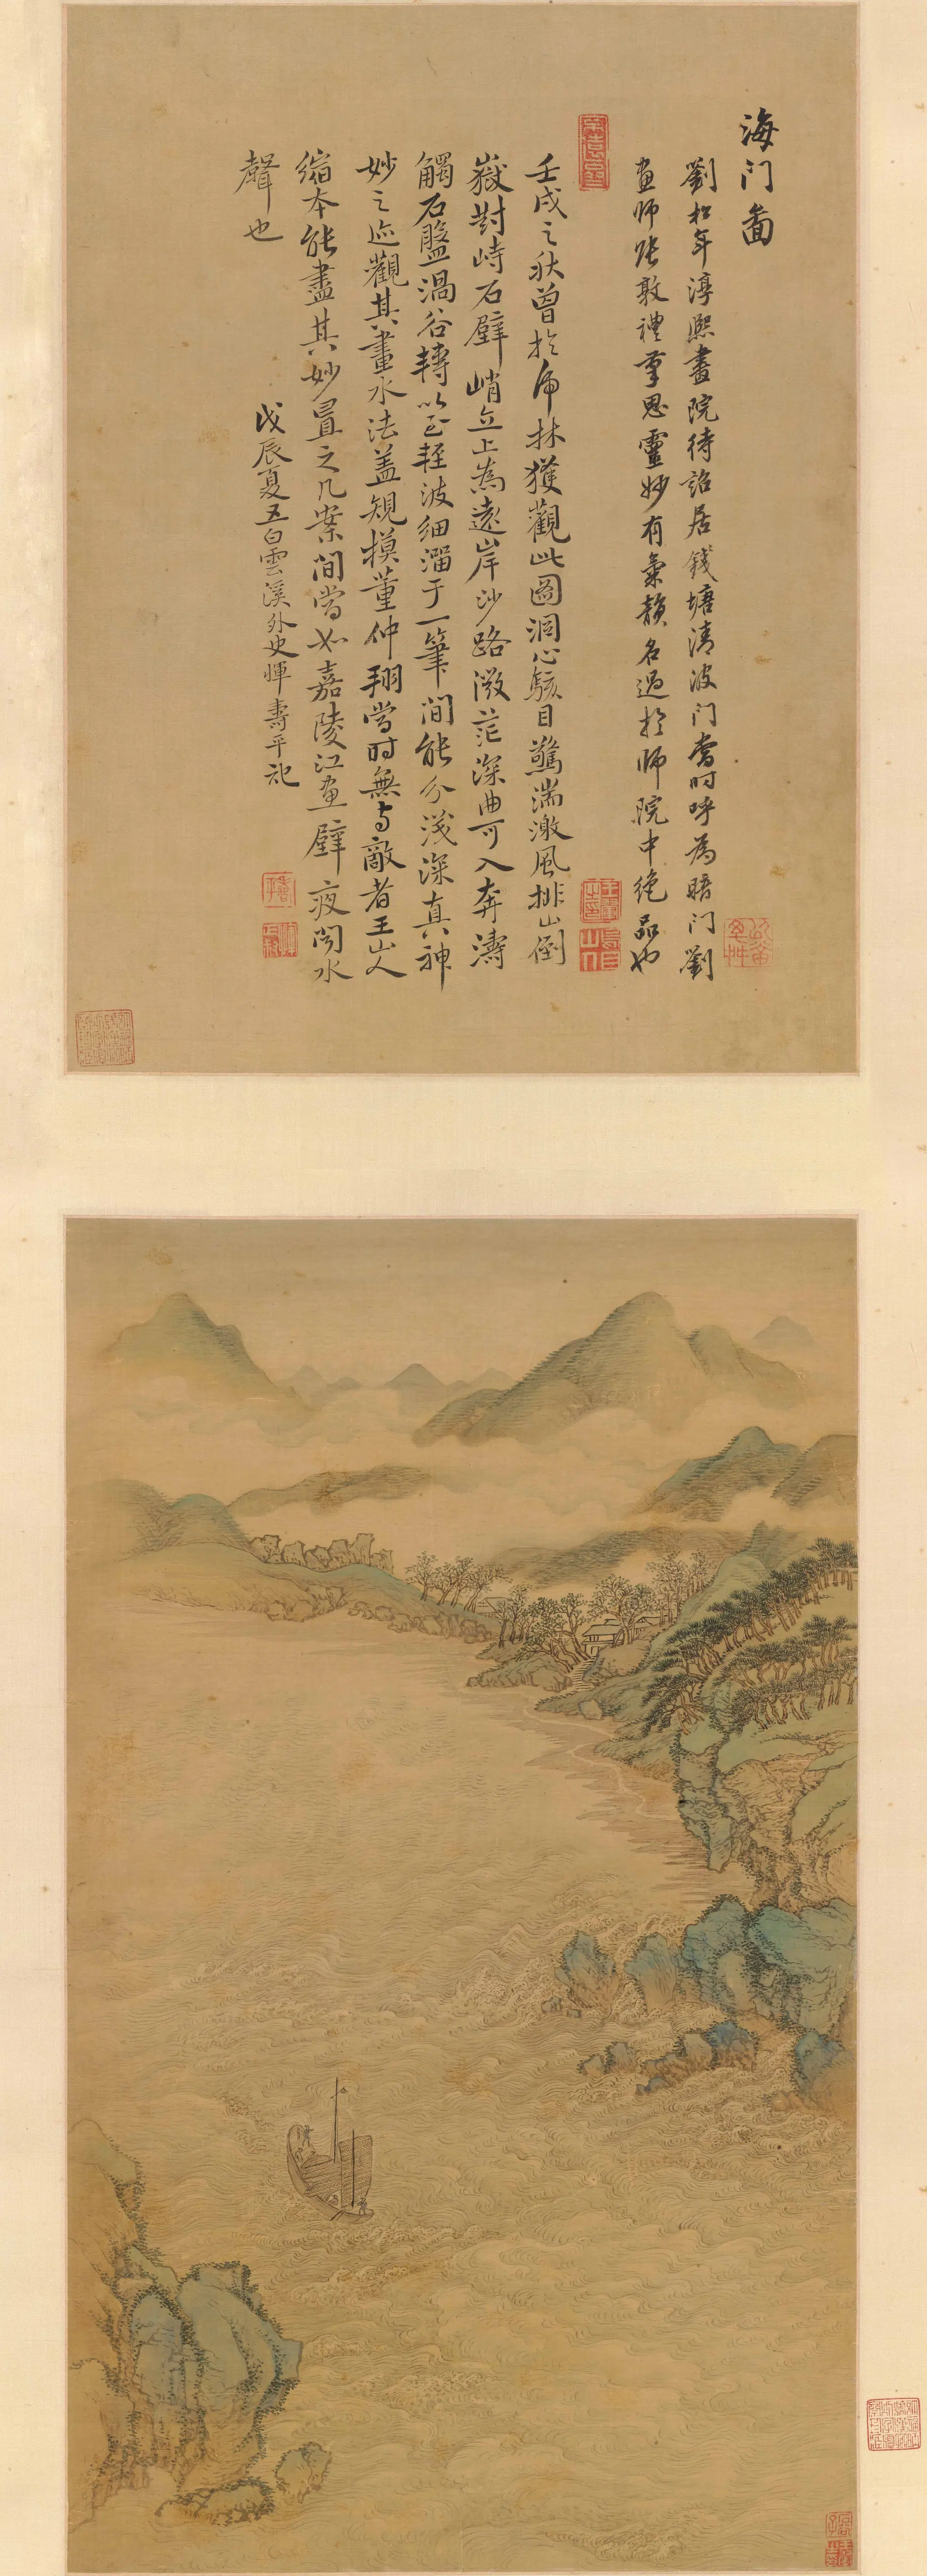 海门圖
劉松年淳熙畫院待詔居錢塘清波门當时呼為暗门劉
畫师张敦禮筆思靈妙有氣韻名過於师院中絶品也
壬戌之秋曾於虎林獲觀此圖洞心駭目驚湍激風排山倒
嶽對峙石壁峭立上為遠岸沙路微茫深曲可入奔濤
觸石盤渦谷轉以至輕波细溜于一筆间能分浅深真神
妙之迹觀其畫水法盖規模董仲翔當时無与敵者王山人
缩本能盡其妙置之几案间當如嘉陵江畫壁夜闻水
聲也
戊辰夏五白雲溪外史惲壽平記